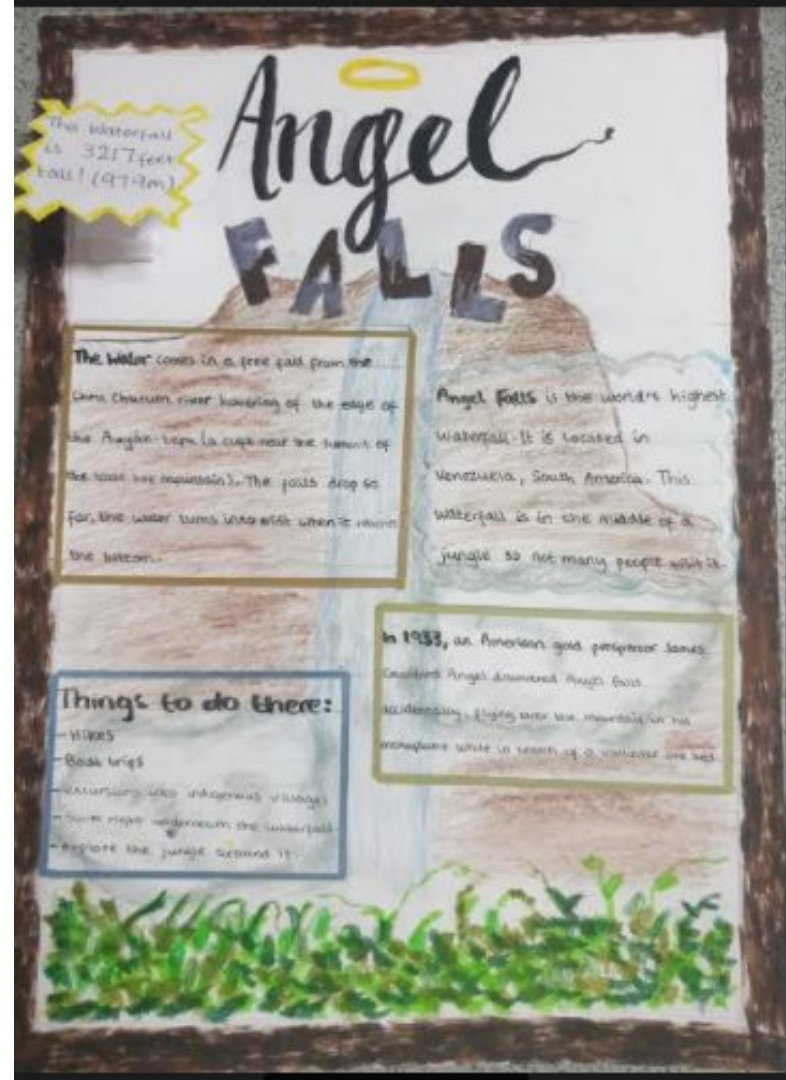 Angel
FALLS
This Waterfall
is 3217feet
tall! (979m)
The Water comes in a free fall from the
churum river hovering of the edge of
the near the summit of
the mountain). The falls drop so
far, the water turns into mist when it
the bottom.
Angel Falls is the world's highest
waterfall. It is located in
Venezuela, South America. This
waterfall is in the middle of a
jungle so not many people visit it.
In 1933, an American gold James
Angel Angel falls
accidentally, flying over the mountain in his
monoplane while in search of a
Things to do there:
- Hikes
- Boat trips
- Excursions into indigenous villages
- right underneath the waterfall
- explore the jungle around it.